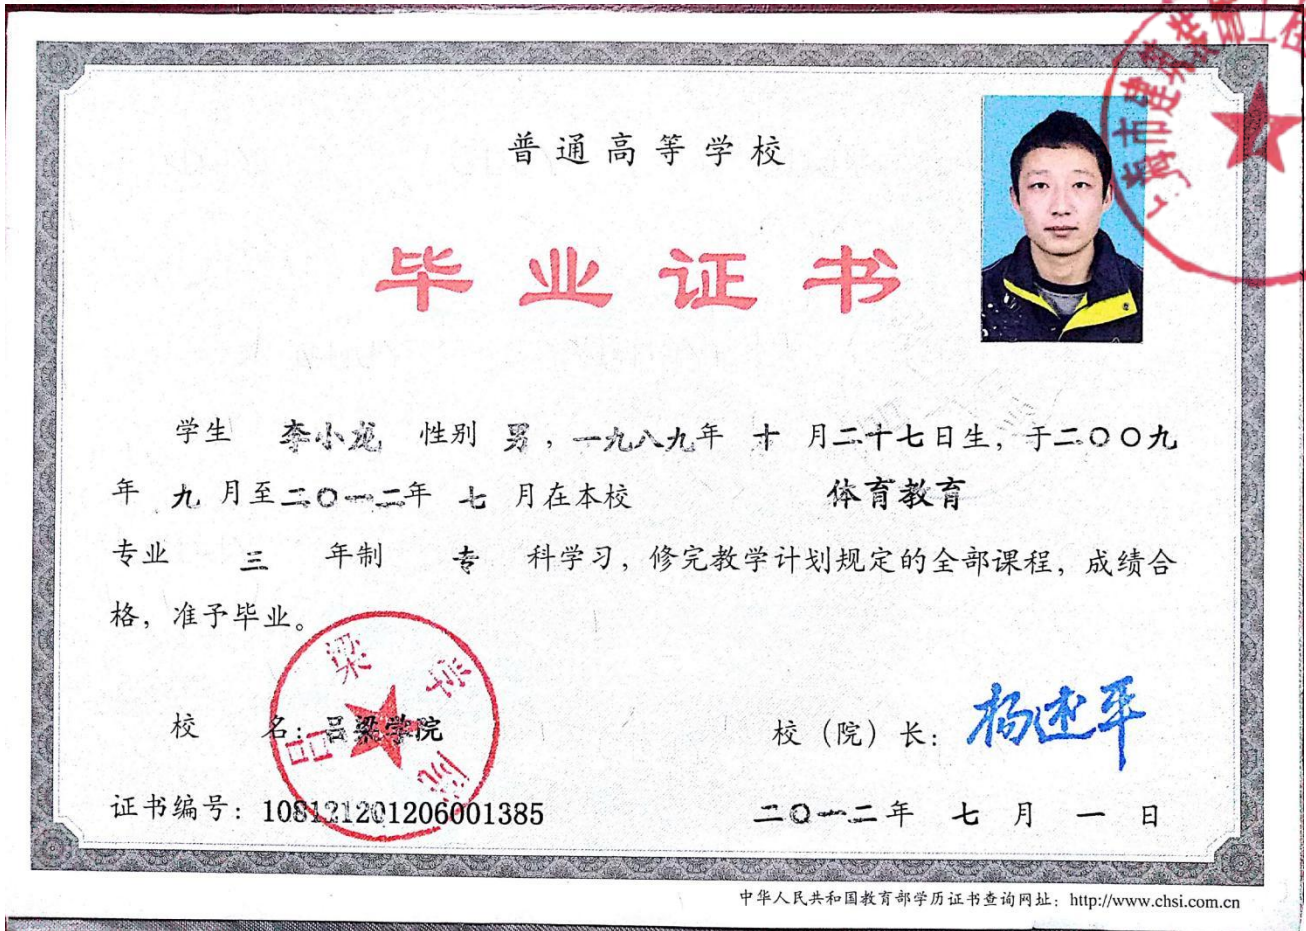 普通高等学校
毕业证书
学生 李小龙 性别 男，一九八九年 十 月二十七日生，于二〇〇九
年 九 月至二〇一二年 七 月在本校 体育教育
专业 三 年制 专 科学习，修完教学计划规定的全部课程，成绩合
格，准予毕业。
校 名：吕梁学院
吕梁学院
校（院）长：杨述平
证书编号：108121201206001385
二〇一二年 七 月 一 日
中华人民共和国教育部学历证书查询网址：http://www.chsi.com.cn
市建筑装饰工程